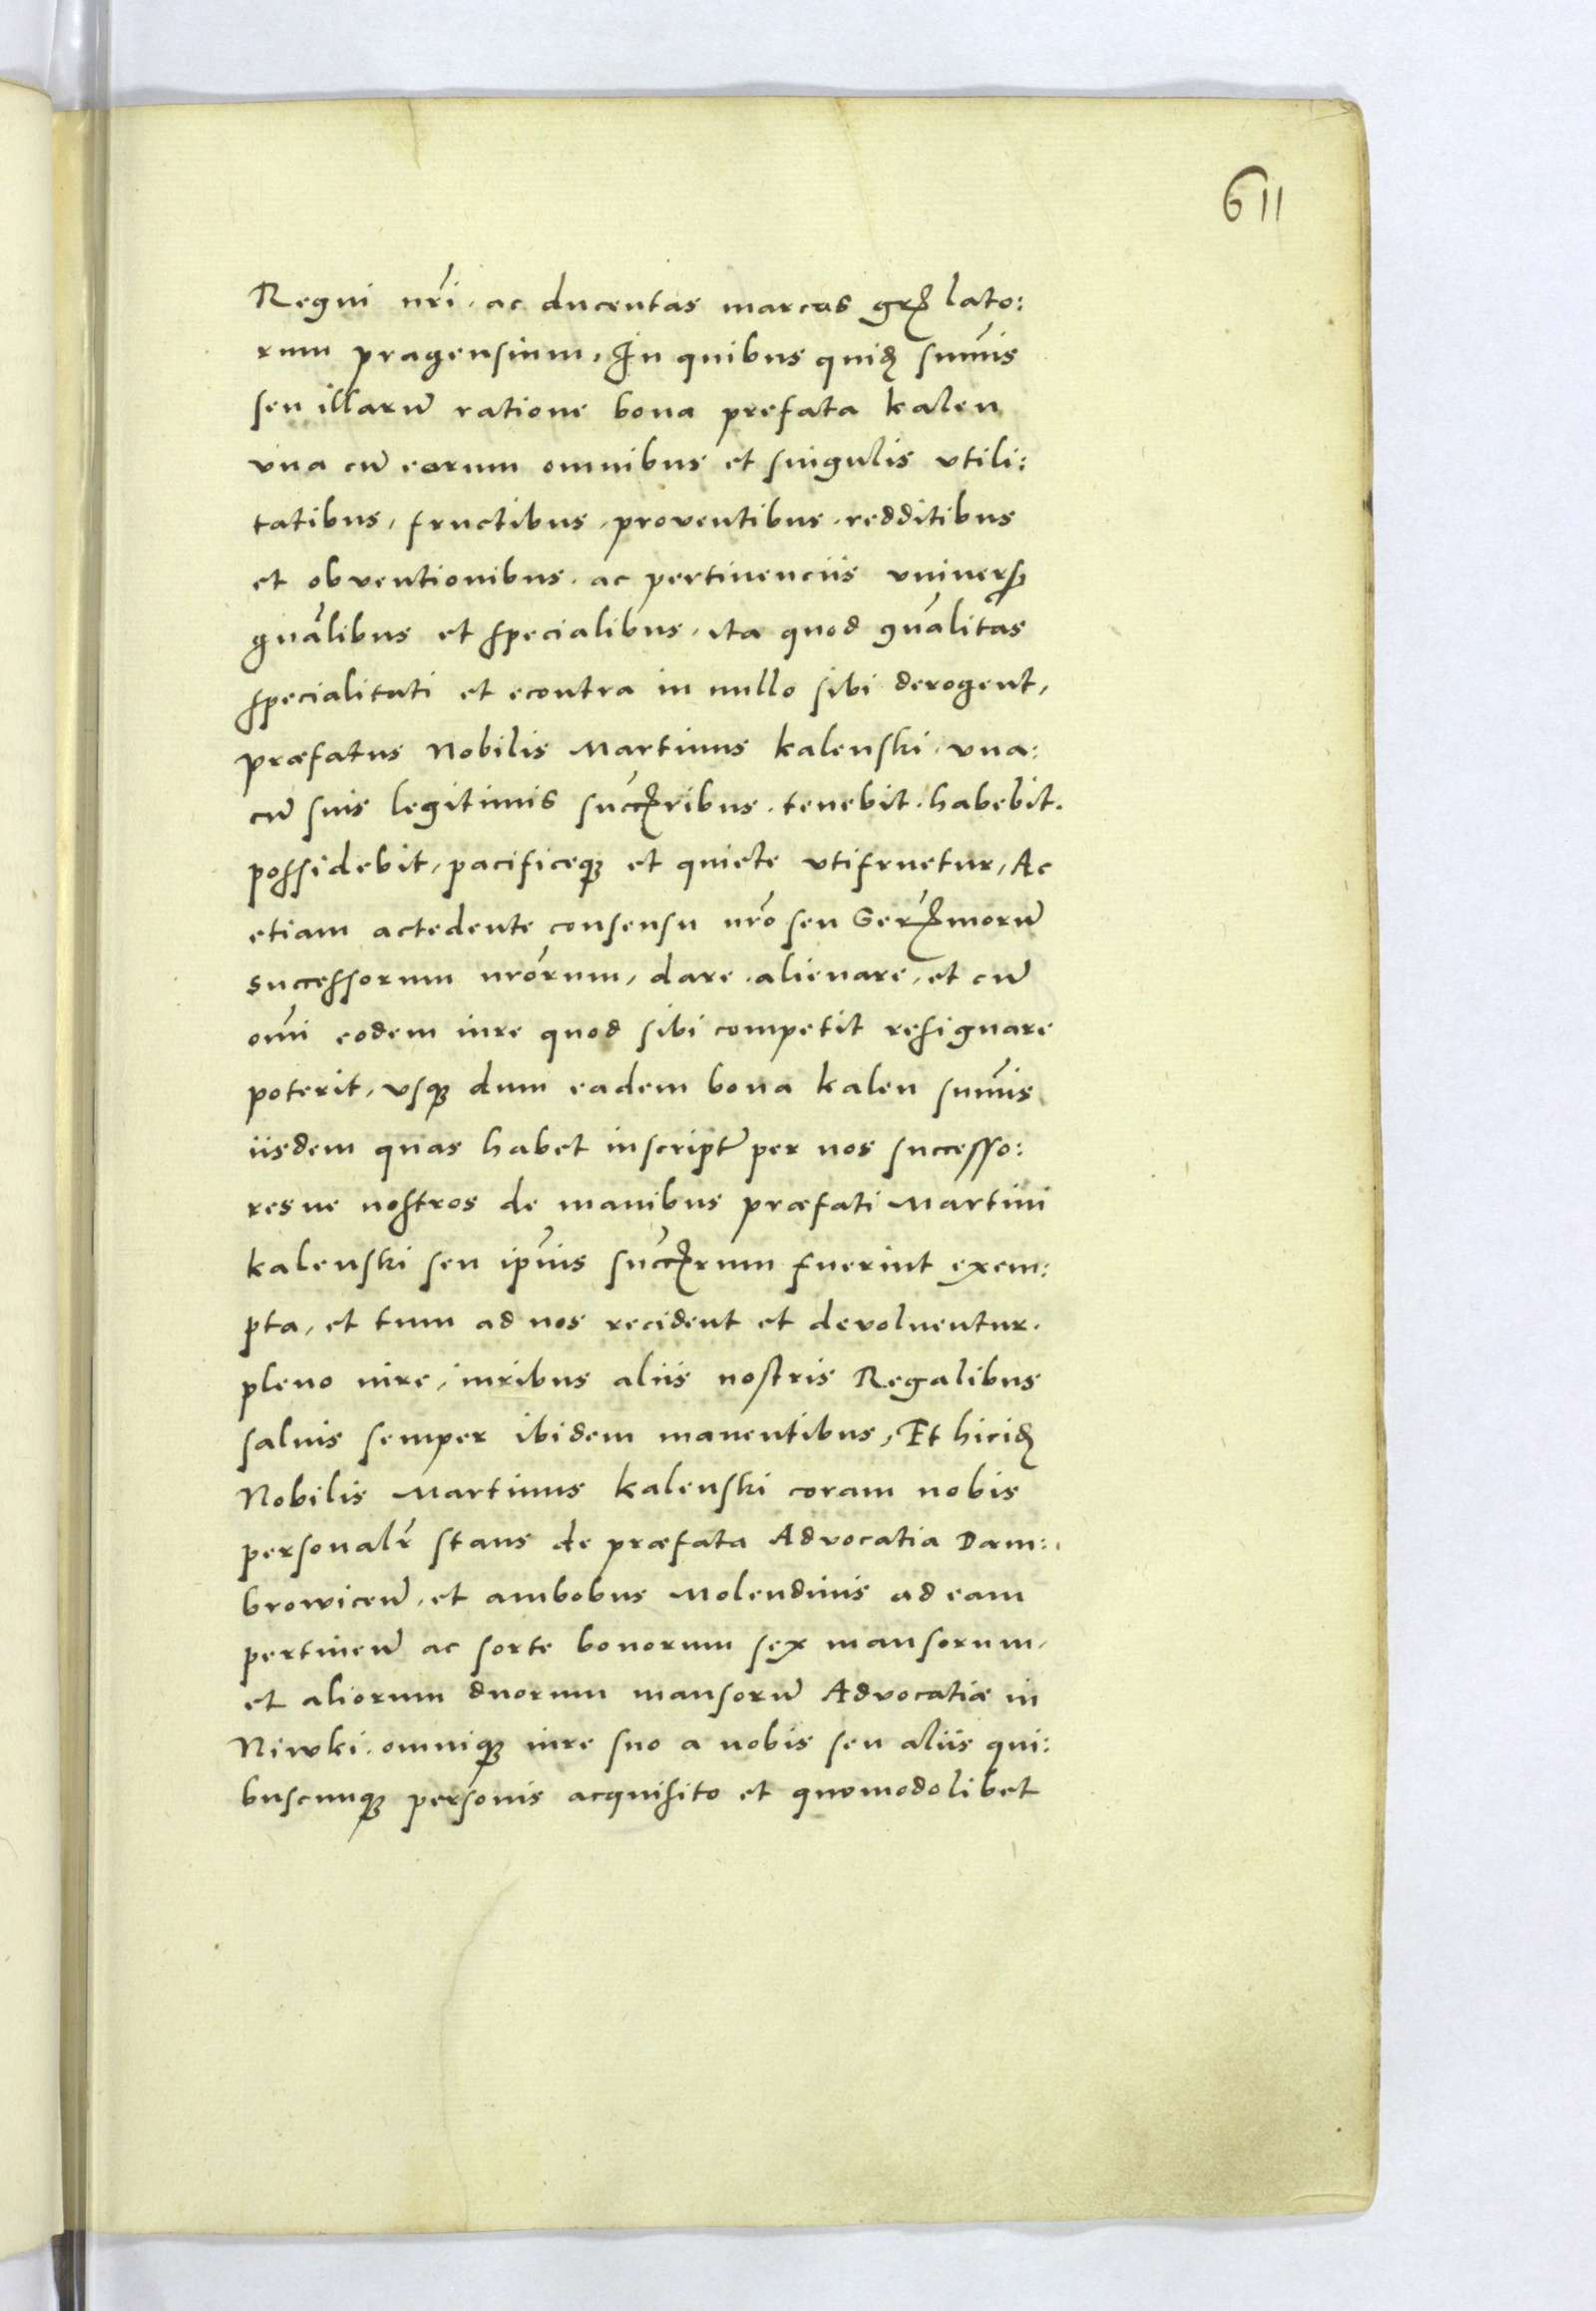 611
Regni nr̃i. ac ducentas marcas gr̃ lato:
rum pragensium, In quibus quid̃ sum̃is
seu illarũ ratione bona prefata kalen
vna cũ eorum omnibus et singulis vtili:
tatibus, fructibus, proventibus, redditibus
et obventionibus, ac pertinenciis vniuers̃
gnãlibus et specialibus, ita quod gnãlitas
specialitati et econtra in nullo sibi derogent,
præfatus Nobilis Martinus kalenski, vna:
cũ suis legitimis succr̃ibus, tenebit, habebit.
possidebit, pacificeq; et quiete vtifruetur, Ac
etiam actedente consensu nr̃o seu Ser̃morũ
successorum nr̃orum, dare, alienare, et cũ
om̃i eodem iure quod sibi competit resignare
poterit, vsq; dum eadem bona kalen sum̃is
iisdem quas habet inscript̃ per nos successo:
resue nostros de manibus præfati Martini
kalenski seu ip̃uis succr̃um fuerint exem:
pta, et tum ad nos recident et devoluentur.
pleno iure, iuribus aliis nostris Regalibus
saluis semper ibidem manentibus, Et hicid̃
Nobilis Martinus kalenski coram nobis
personalr̃ stans de præfata Advocatia Dam:
browiceñ, et ambobus Molendinis ad eam
pertineñ ac sorte bonorum sex mansorum,
et aliorum duorum mansorũ Advocatiæ in
Niwki, omniq; iure suo a nobis seu aliis qui:
buscunq; personis acquisito et quomodolibet